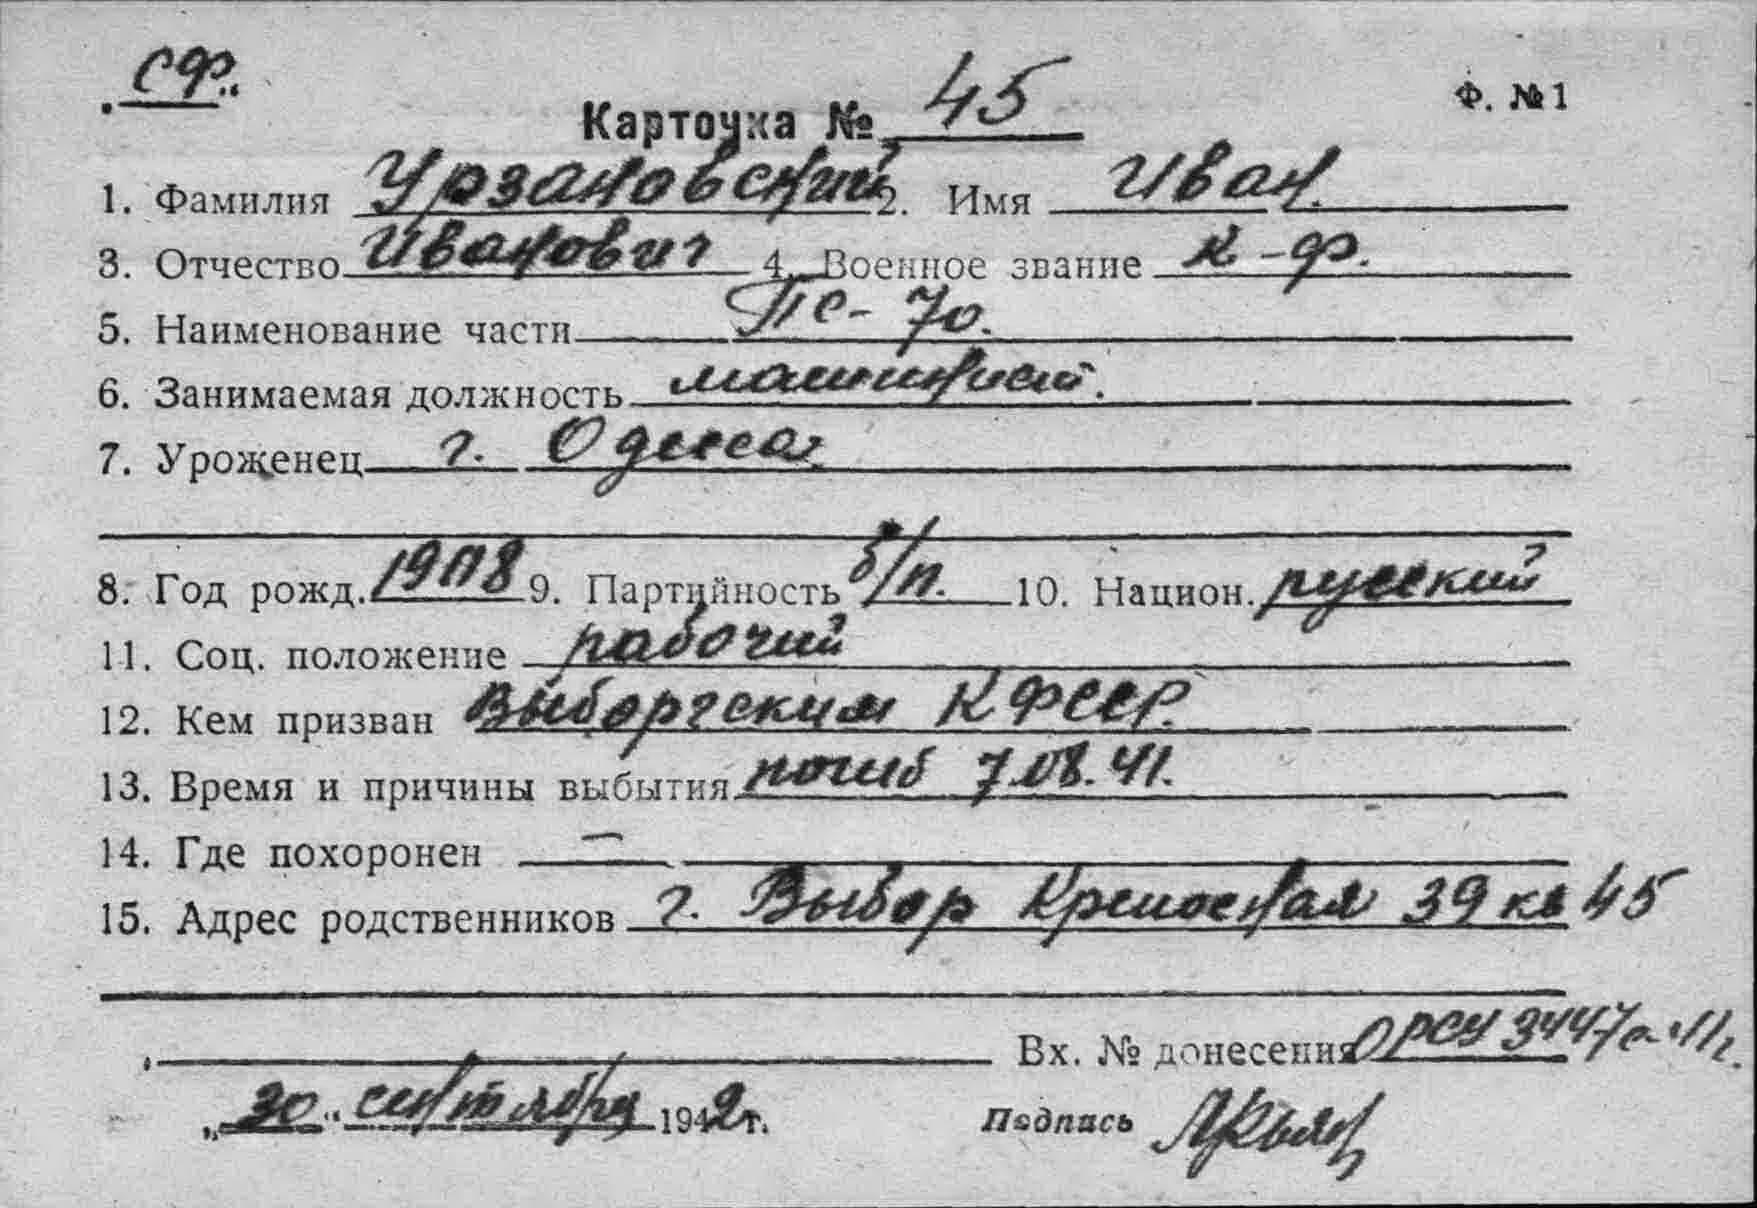 СФ.
Карточка № 45 Ф. №1
1. Фамилия Урзановский 2. Имя Иван.
3. Отчество Иванович 4. Военное звание к-ф.
5. Наименование части ПС-70.
6. Занимаемая должность машинист.
7. Уроженец г. Одесса
8. Год рожд. 1908 9. Партийность б/п. 10. Национ. русский
11. Соц. положение рабочий
12. Кем призван Выборгским КФССР.
13. Время и причины выбытия погиб 7.08.41.
14. Где похоронен —
15. Адрес родственников г. Выбор Крепосная 39 кв 45
Вх. № донесения 3447с-41г.
„30" сентября 1942г. Подпись